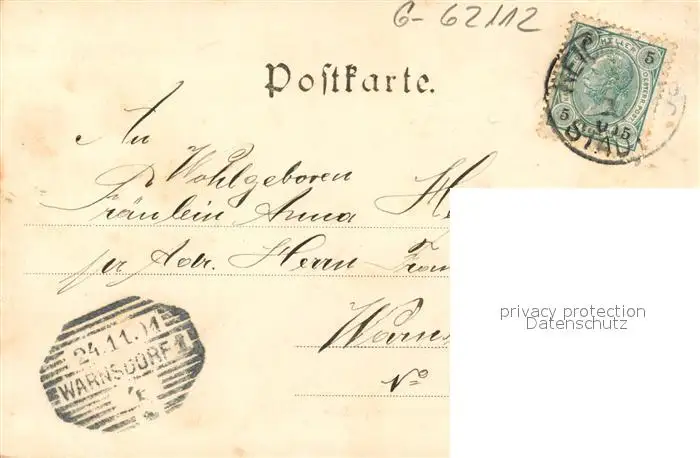 G-62112
5 HELLER 5
5 5
Postkarte.
An
Wohlgeboren
Fräulein Anna
pr Adr. Herrn
No
24.11.01
WARNSDORF 1
privacy protection
Datenschutz